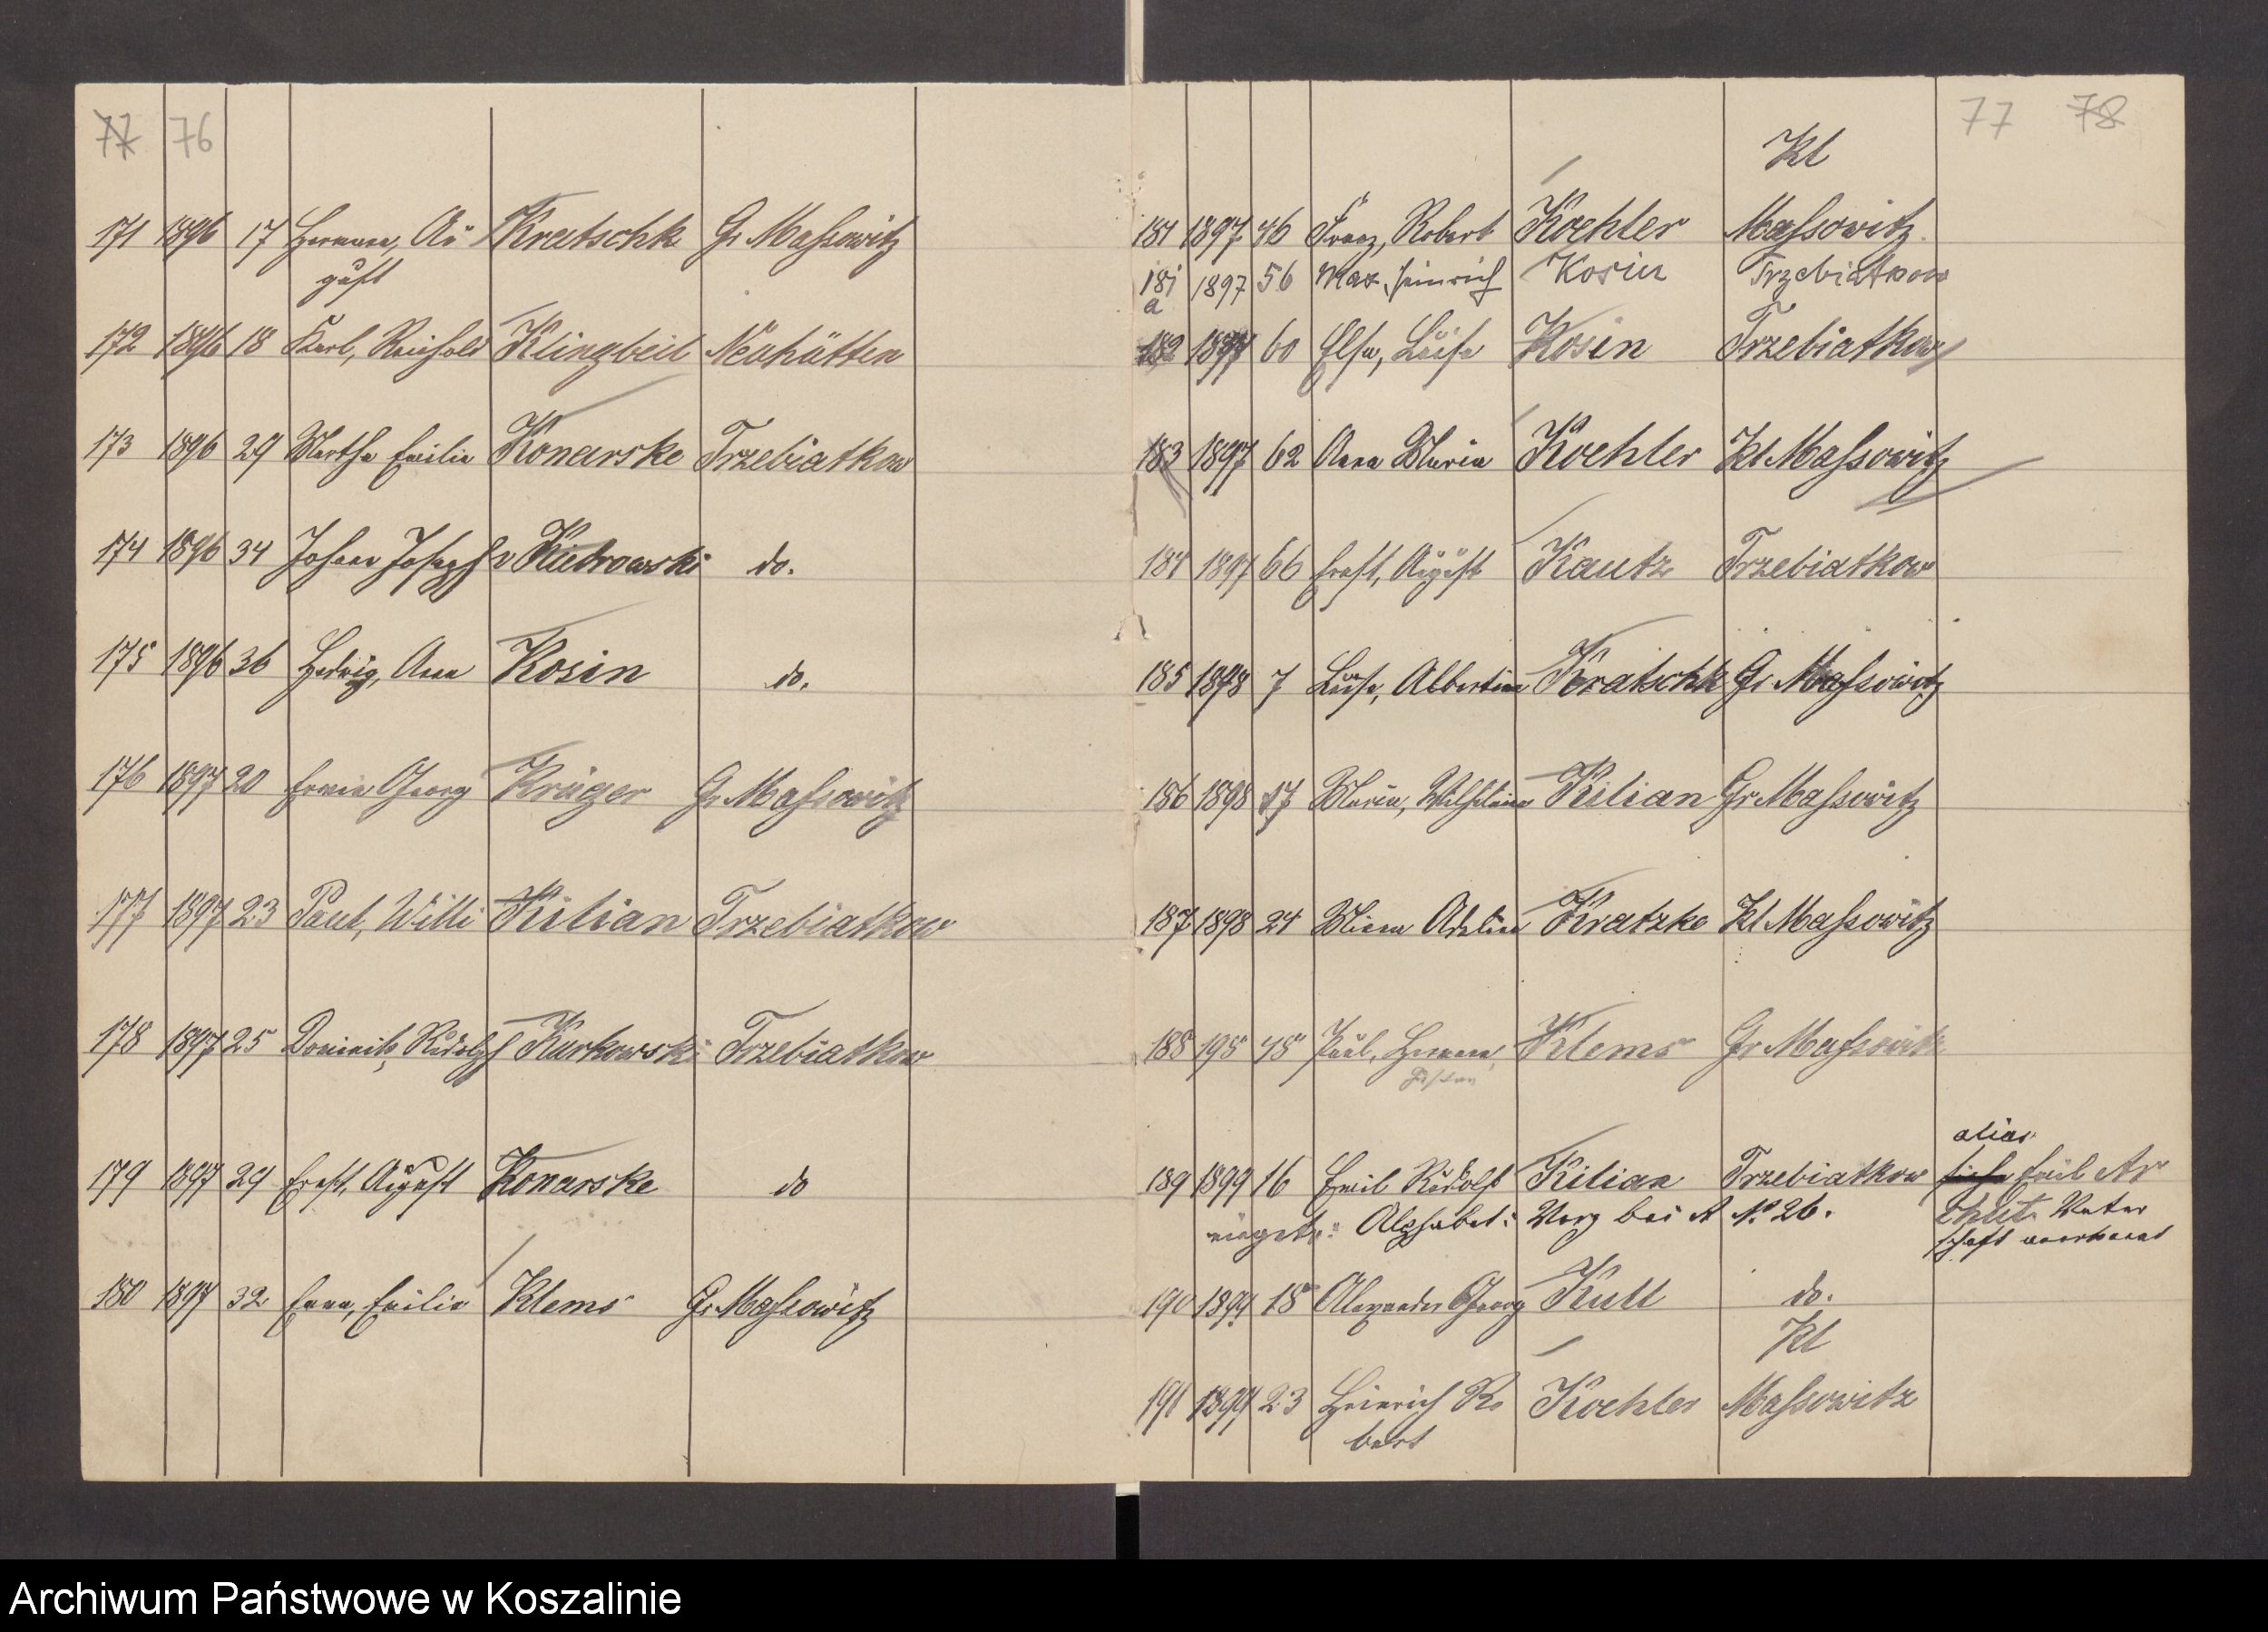 77 76
171 1896 17 Hermann, Au Kratschk Gr Massowitz
gust
172 1896 18 Karl, Reinhold Klingbeil Neuhütten
173 1896 29 Martha Emilie Konarske Trzebiatkow
174 1896 34 Johann Joseph v Kiedrowski do.
175 1896 36 Hedwig, Anna Kosin do.
176 1897 20 Erwin Georg Krüger Gr Massowitz
177 1897 23 Paul, Willi Kilian Trzebiatkow
178 1897 25 Dominik, Rudolph Kurkowski Trzebiatkow
179 1897 29 Ernst, August Konarske do
180 1897 32 Emma, Emilie Klems Gr Massowitz
77 78
Kl
181 1897 46 Franz, Robert Koehler Massowitz
181 1897 56 Max, Heinrich Kosin Trzebiatkow
a
182 1897 60 Elsa, Luise Kosin Trzebiatkow
183 1897 62 Anna Maria Koehler Kl Massowitz
184 1897 66 Ernst, August Kautz Trzebiatkow
185 1898 7 Luise, Albertine Kratschk Gr Massowitz
186 1898 17 Maria, Wilhelmine Kilian Gr Massowitz
187 1898 24 Minna Adeline Kratzke Kl Massowitz
188 195 45 Paul, Hermann, Klems Gr Massowitz
Gustav
alias
189 1899 16 Emil Rudolf Kilian Trzebiatkow siehe Emil Ar
eingetr: Alphabet: Verz bei A No 26. Vater
schaft anerkannt
190 1899 18 Alexander Georg Kull do.
Kl
191 1899 23 Heinrich Ro Koehler Massowitz
bert
Archiwum Państwowe w Koszalinie